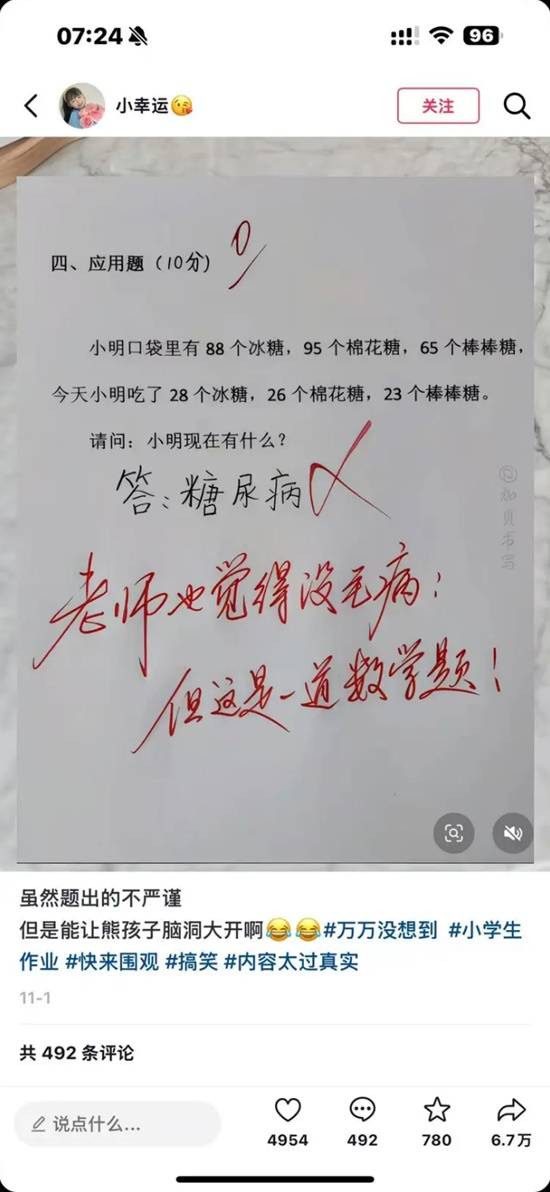 07:24
96
小幸运😘
关注
四、应用题（10分）
0
小明口袋里有 88 个冰糖，95 个棉花糖，65 个棒棒糖，
今天小明吃了 28 个冰糖，26 个棉花糖，23 个棒棒糖。
请问：小明现在有什么？
答：糖尿病
老师也觉得没毛病：
但这是一道数学题！
虽然题出的不严谨
但是能让熊孩子脑洞大开啊😂😂#万万没想到 #小学生
作业 #快来围观 #搞笑 #内容太过真实
11-1
共 492 条评论
说点什么...
4954
492
780
6.7万